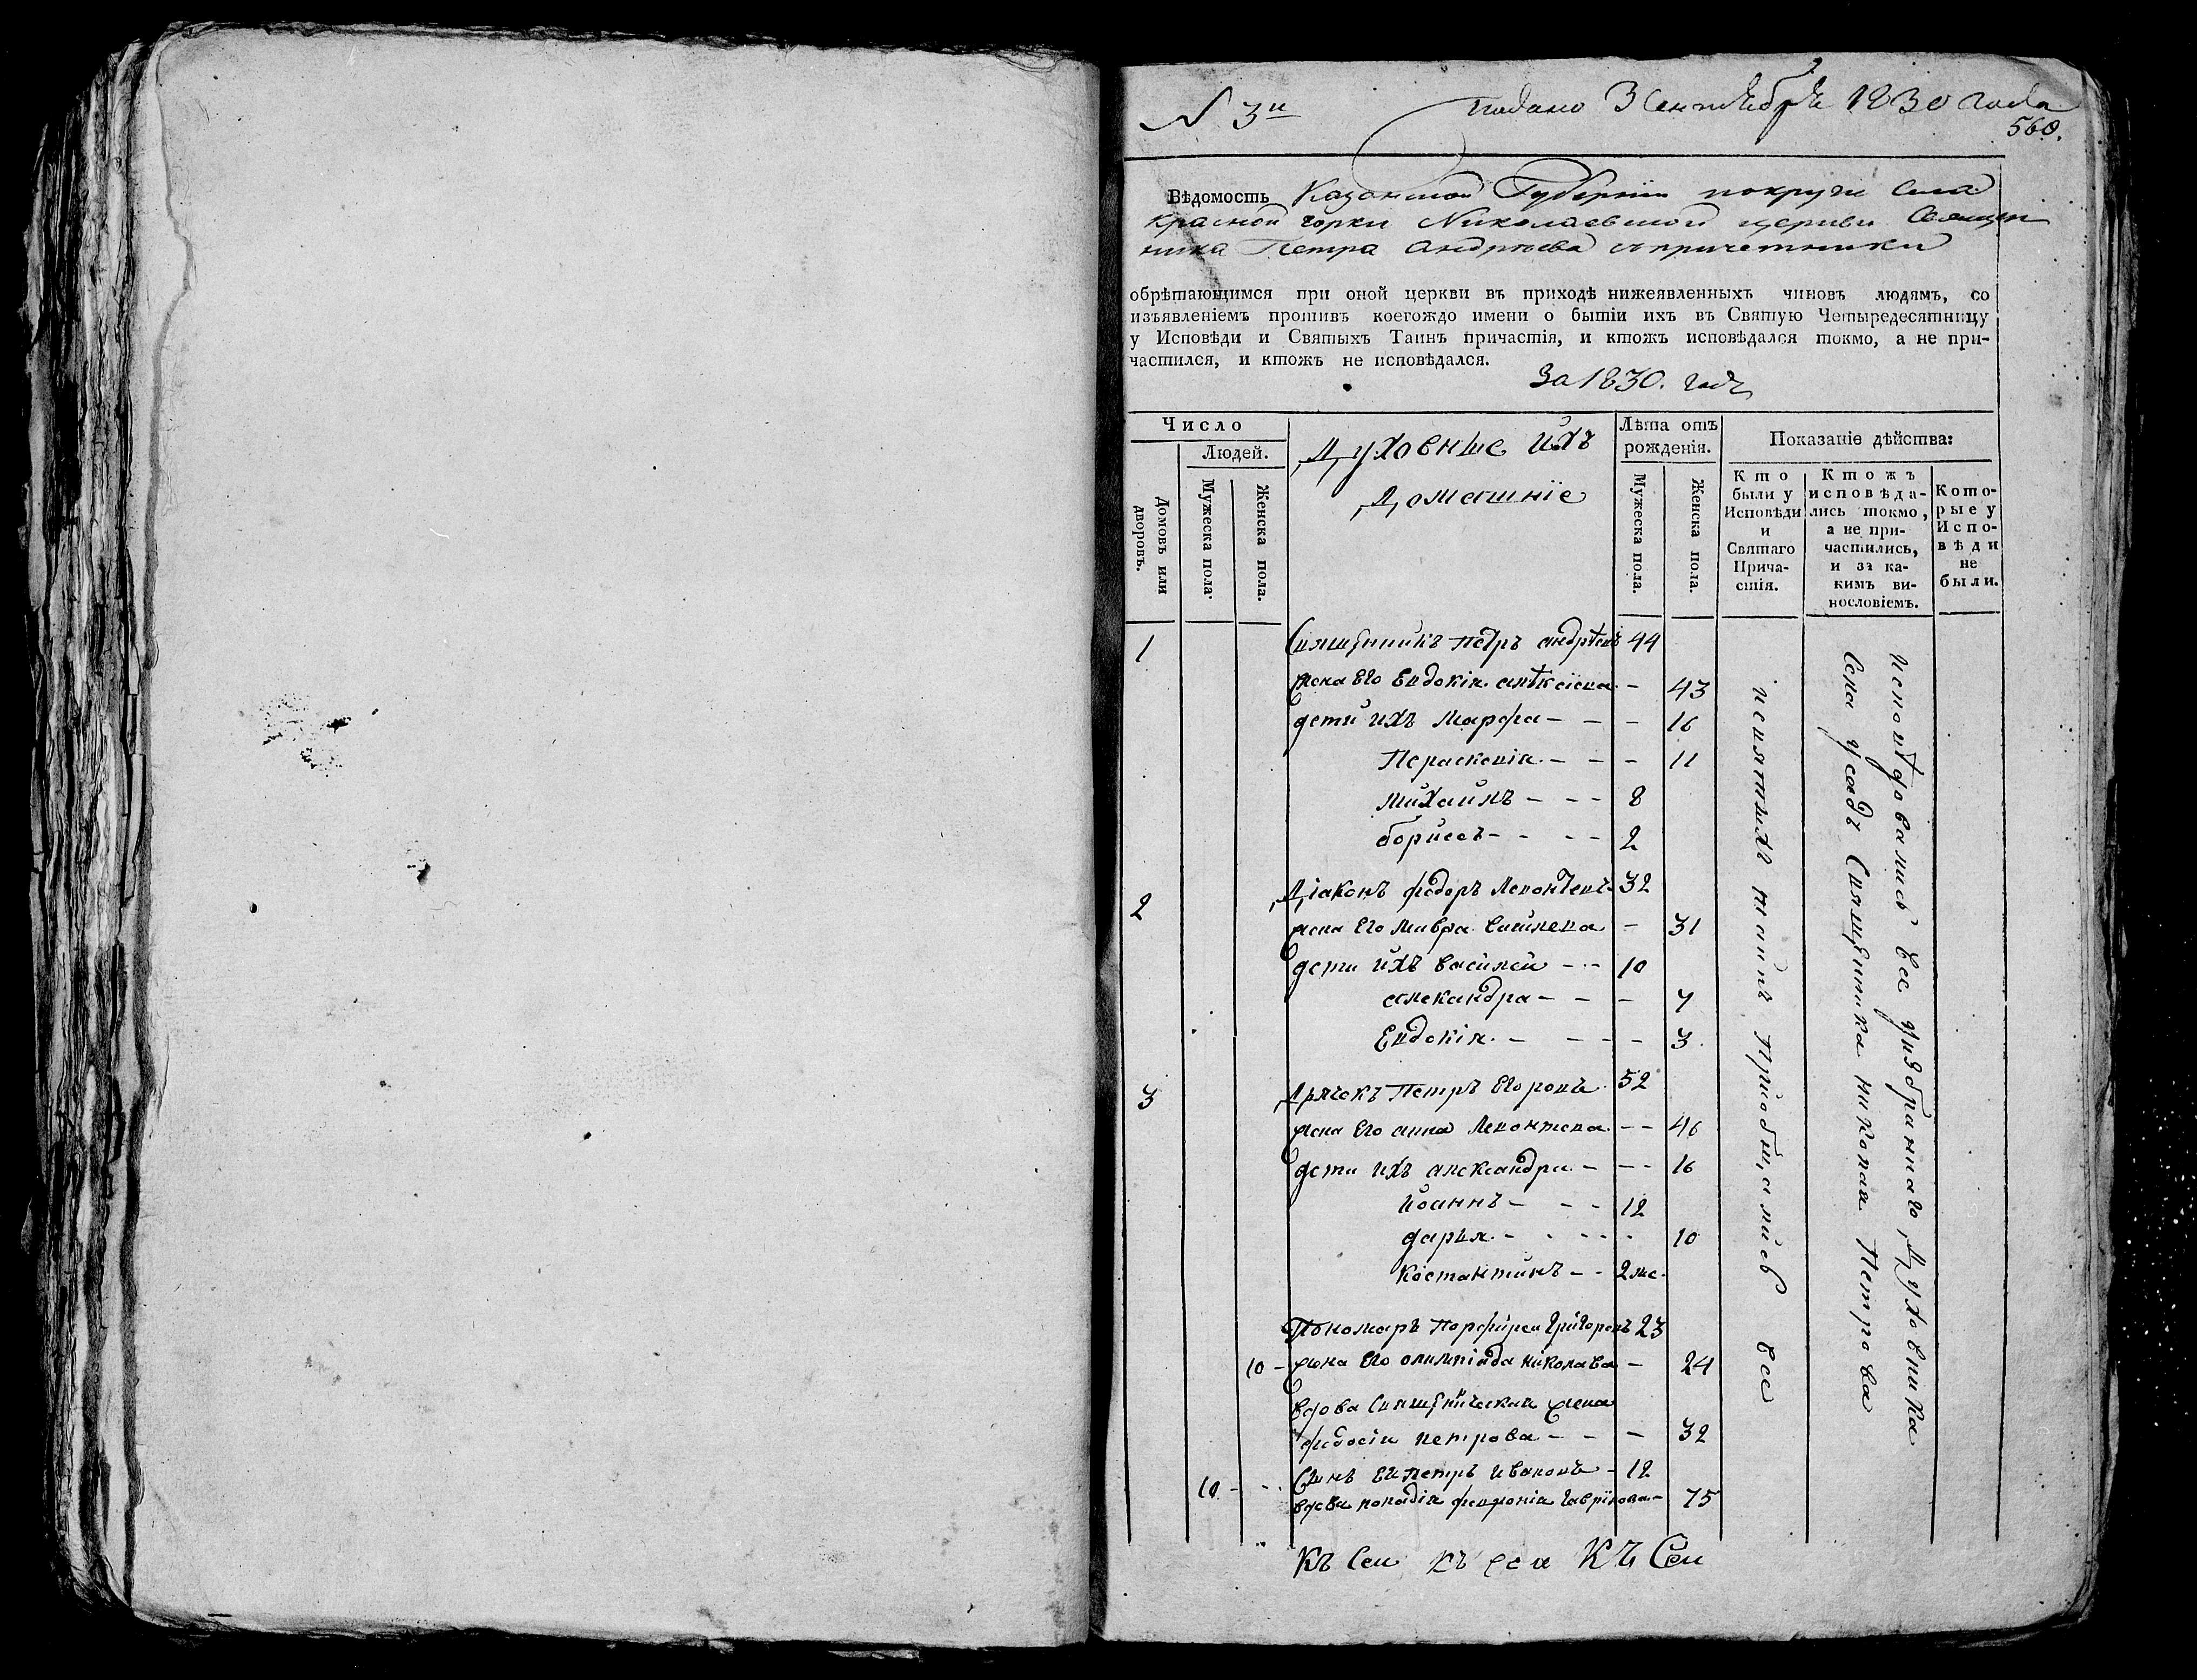 N 3й
подано 3 Сентября 1830 года
560.
Вѣдомость Казанской Губернии округи Села
Красной горки Николаевской церкви Священ
ника Петра Андреева съ причетники
обрѣтающимся при оной церкви въ приходѣ нижеявленныхъ чиновъ людямъ, со
изъявленіемъ противъ коегождо имени о бытіи ихъ въ Святую Четыредесятницу
у Исповѣди и Святыхъ Таинъ причастія, и ктожъ исповѣдался токмо, а не при-
частился, и ктожъ не исповѣдался.
За 1830. годъ
Число
Людей.
Домовъ или
дворовъ.
Мужеска пола.
Женска пола.
Духовные ихъ
Домашніе
Лѣта отъ
рожденія.
Мужеска пола.
Женска пола.
Показаніе дѣйства:
Кто
были у
Исповѣди
и
Святаго
Прича-
стія.
Ктожъ
исповѣда-
лись токмо,
а не при-
частились,
и за ка-
кимъ ви-
нословіемъ.
Кото-
рые у
Испо-
вѣди
не
были.
1 Священникъ Петръ андрѣевъ 44
жена Его Евдокія алѣксіева - 43
дети ихъ Марфа - - - 16
Пераскевія - - - 11
михаилъ - - - 8
борисъ - - - - 2
2 Діаконъ федоръ Леонтевъ 32
жена Его Мавра Василева - 31
дети ихъ василей - - 10
александра - - - 7
Евдокія - - - - 3
3 Дьячокъ Петръ Егоровъ 52
жена Его анна Леонтева - - 46
дети ихъ александра - - - 16
иоаннъ - - - 12
дарья - - - - - 10
Костантинъ - - 2 мс.
Пономарь Порфирей Григоревъ 23
10 - жена Его олимпіада николаева - 24
вдова Священическая жена
федосія петрова - - - 32
10 - - Сынъ Ей петръ ивановъ - 12
вдова попадія феврония гаврилова - 75
и святыхъ таинъ Приобщались все
исповѣдовались все у избраннаго Духовника
Села усадъ Священника николая Петрова